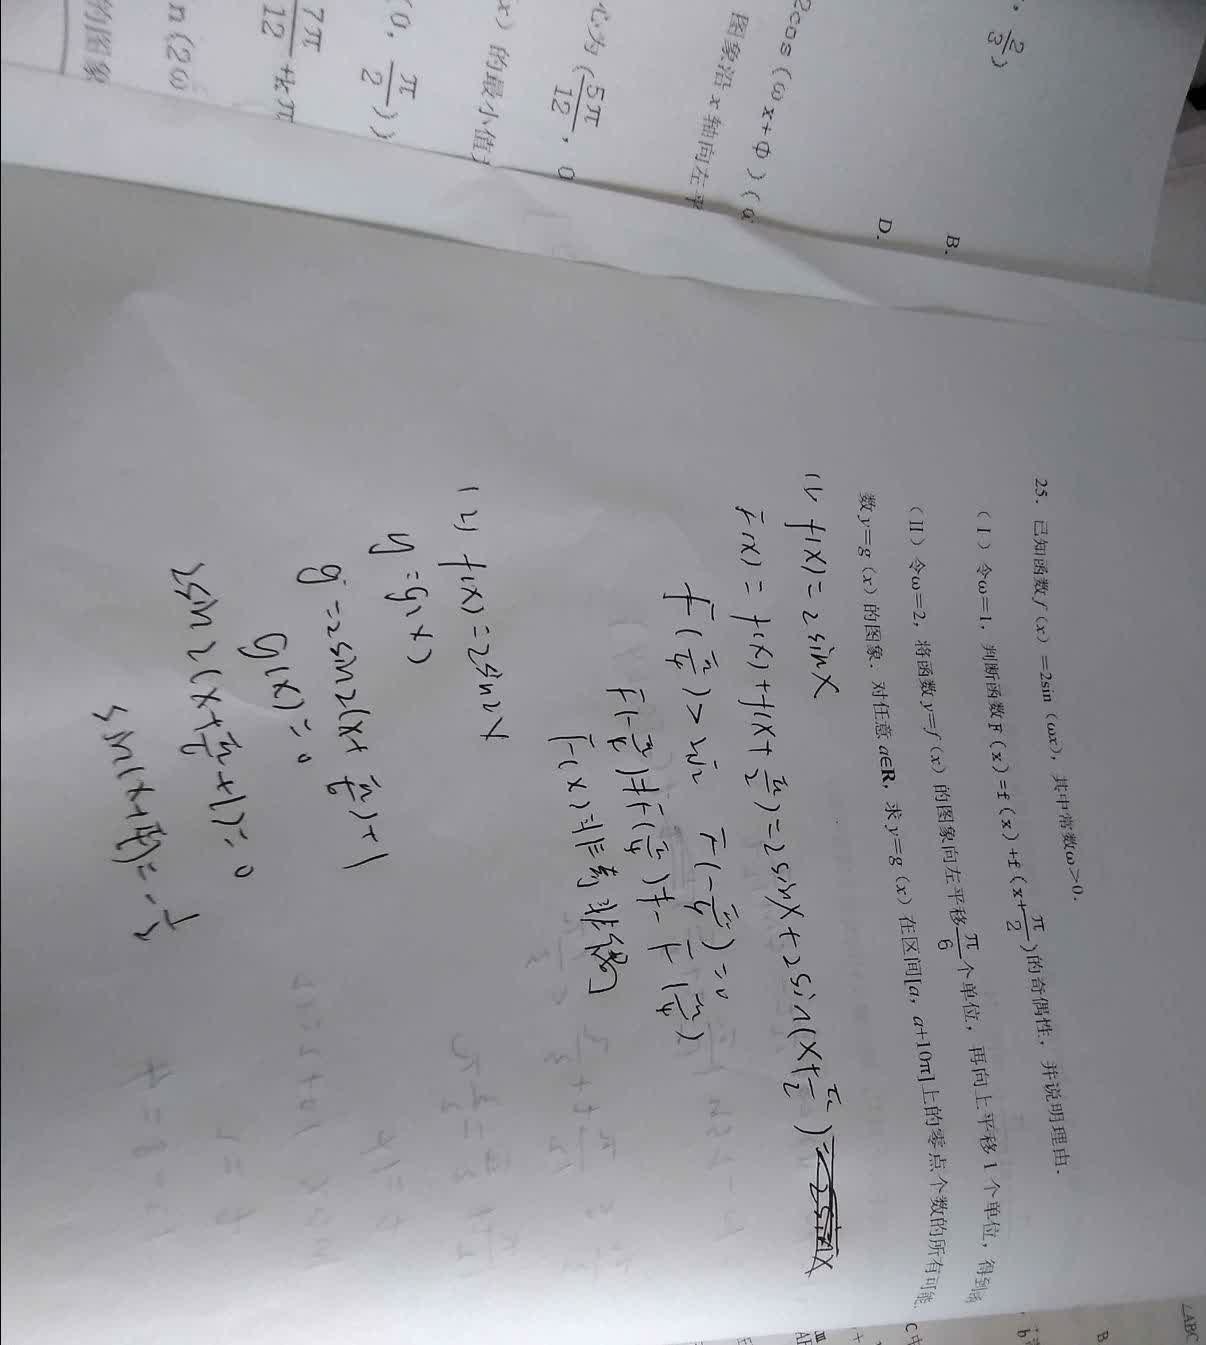 , 2/3)
B.
D.
2cos(ωx+φ)(
图象沿x轴向左平
心为(5π/12, 0
x)的最小值
(0, π/2))
7π/12+kπ
n(2ω
的图象
25. 已知函数f(x)=2sin(ωx), 其中常数ω>0.
(I)令ω=1, 判断函数F(x)=f(x)+f(x+π/2)的奇偶性, 并说明理由.
(II)令ω=2, 将函数y=f(x)的图象向左平移π/6个单位, 再向上平移1个单位, 得到函
数y=g(x)的图象. 对任意a∈R, 求y=g(x)在区间[a, a+10π]上的零点个数的所有可能
(1) f(x)=2sinx
F(x)=f(x)+f(x+π/2)=2sinx+2sin(x+π/2)
F(π/4)=2√2 F(-π/4)=0
F(-π/4)≠F(π/4)≠-F(π/4)
F(x)非奇非偶
(2) f(x)=2sin2x
y=g(x)
g=2sin2(x+π/6)+1
g(x)=0
=0
△ABC
B